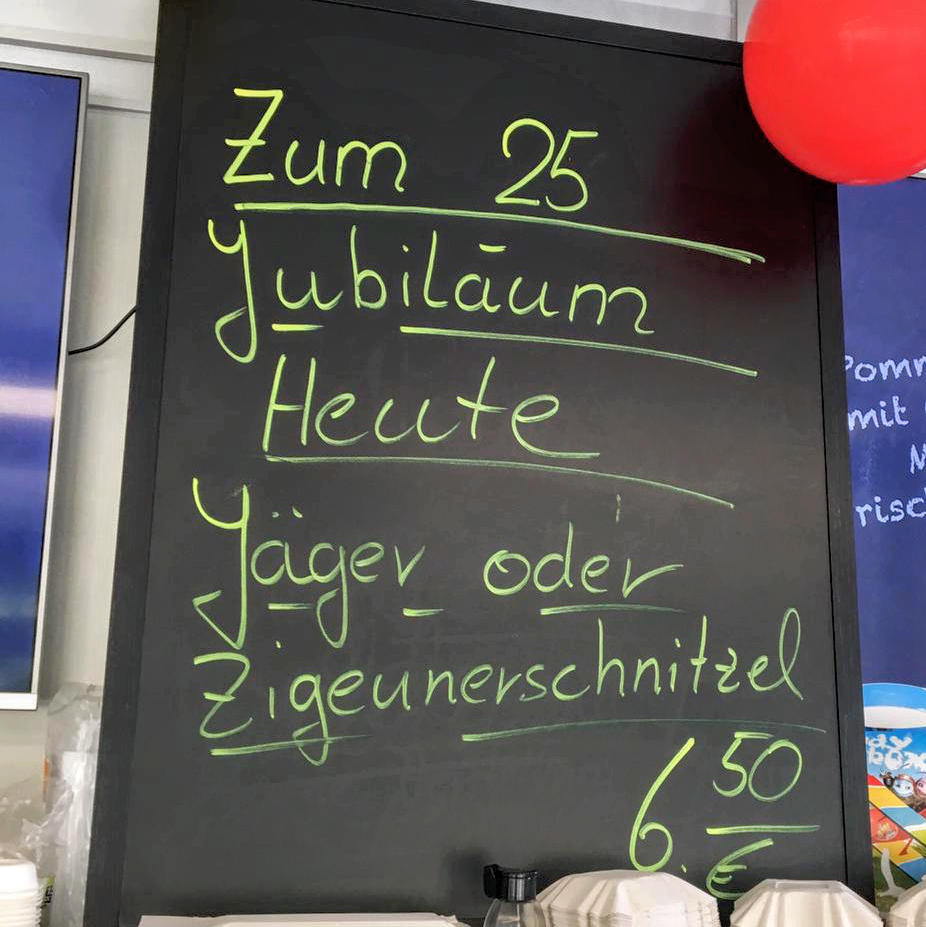 Zum 25
Jubiläum
Heute
Jäger oder
Zigeunerschnitzel
6.50
€
mit